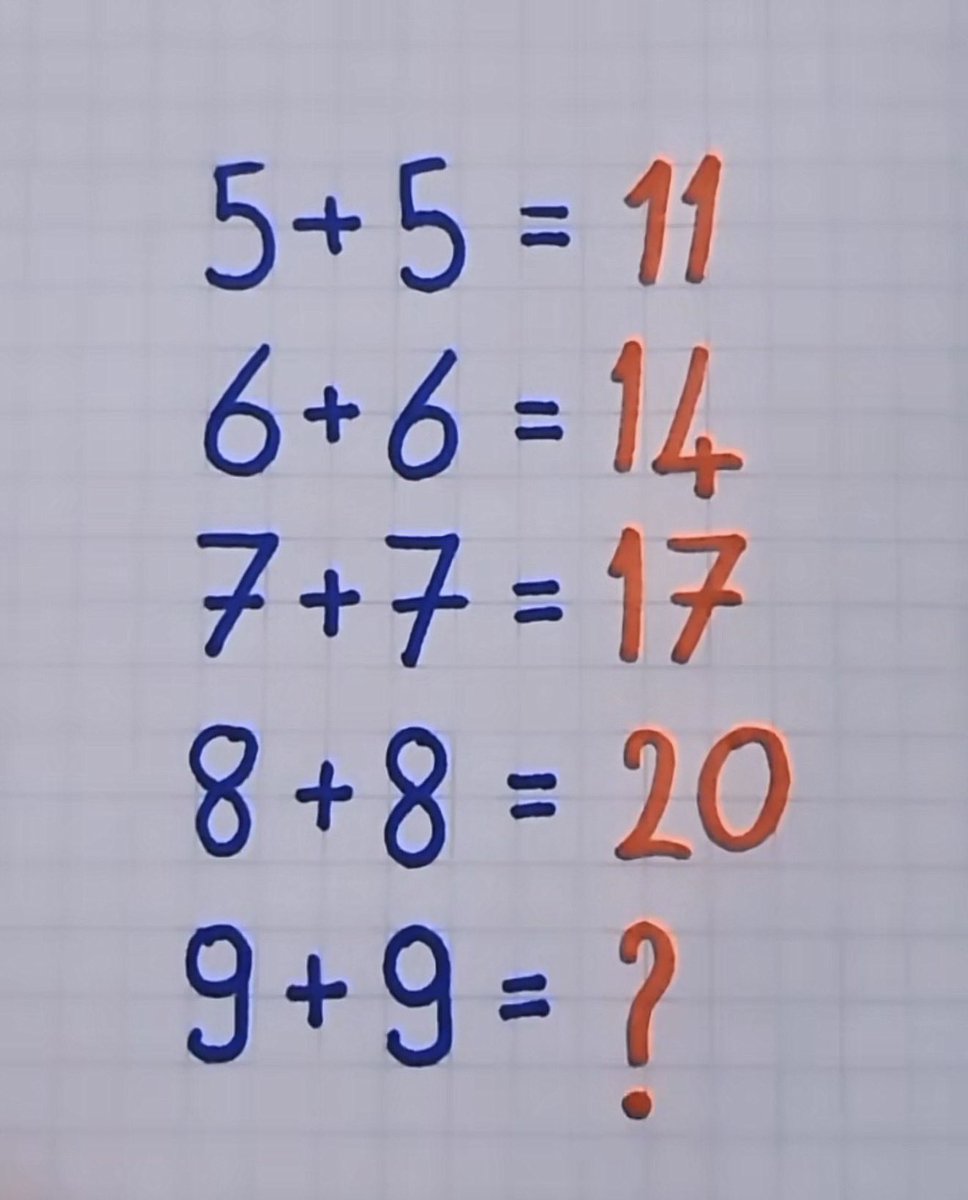 5 + 5 = 11
6 + 6 = 14
7 + 7 = 17
8 + 8 = 20
9 + 9 = ?